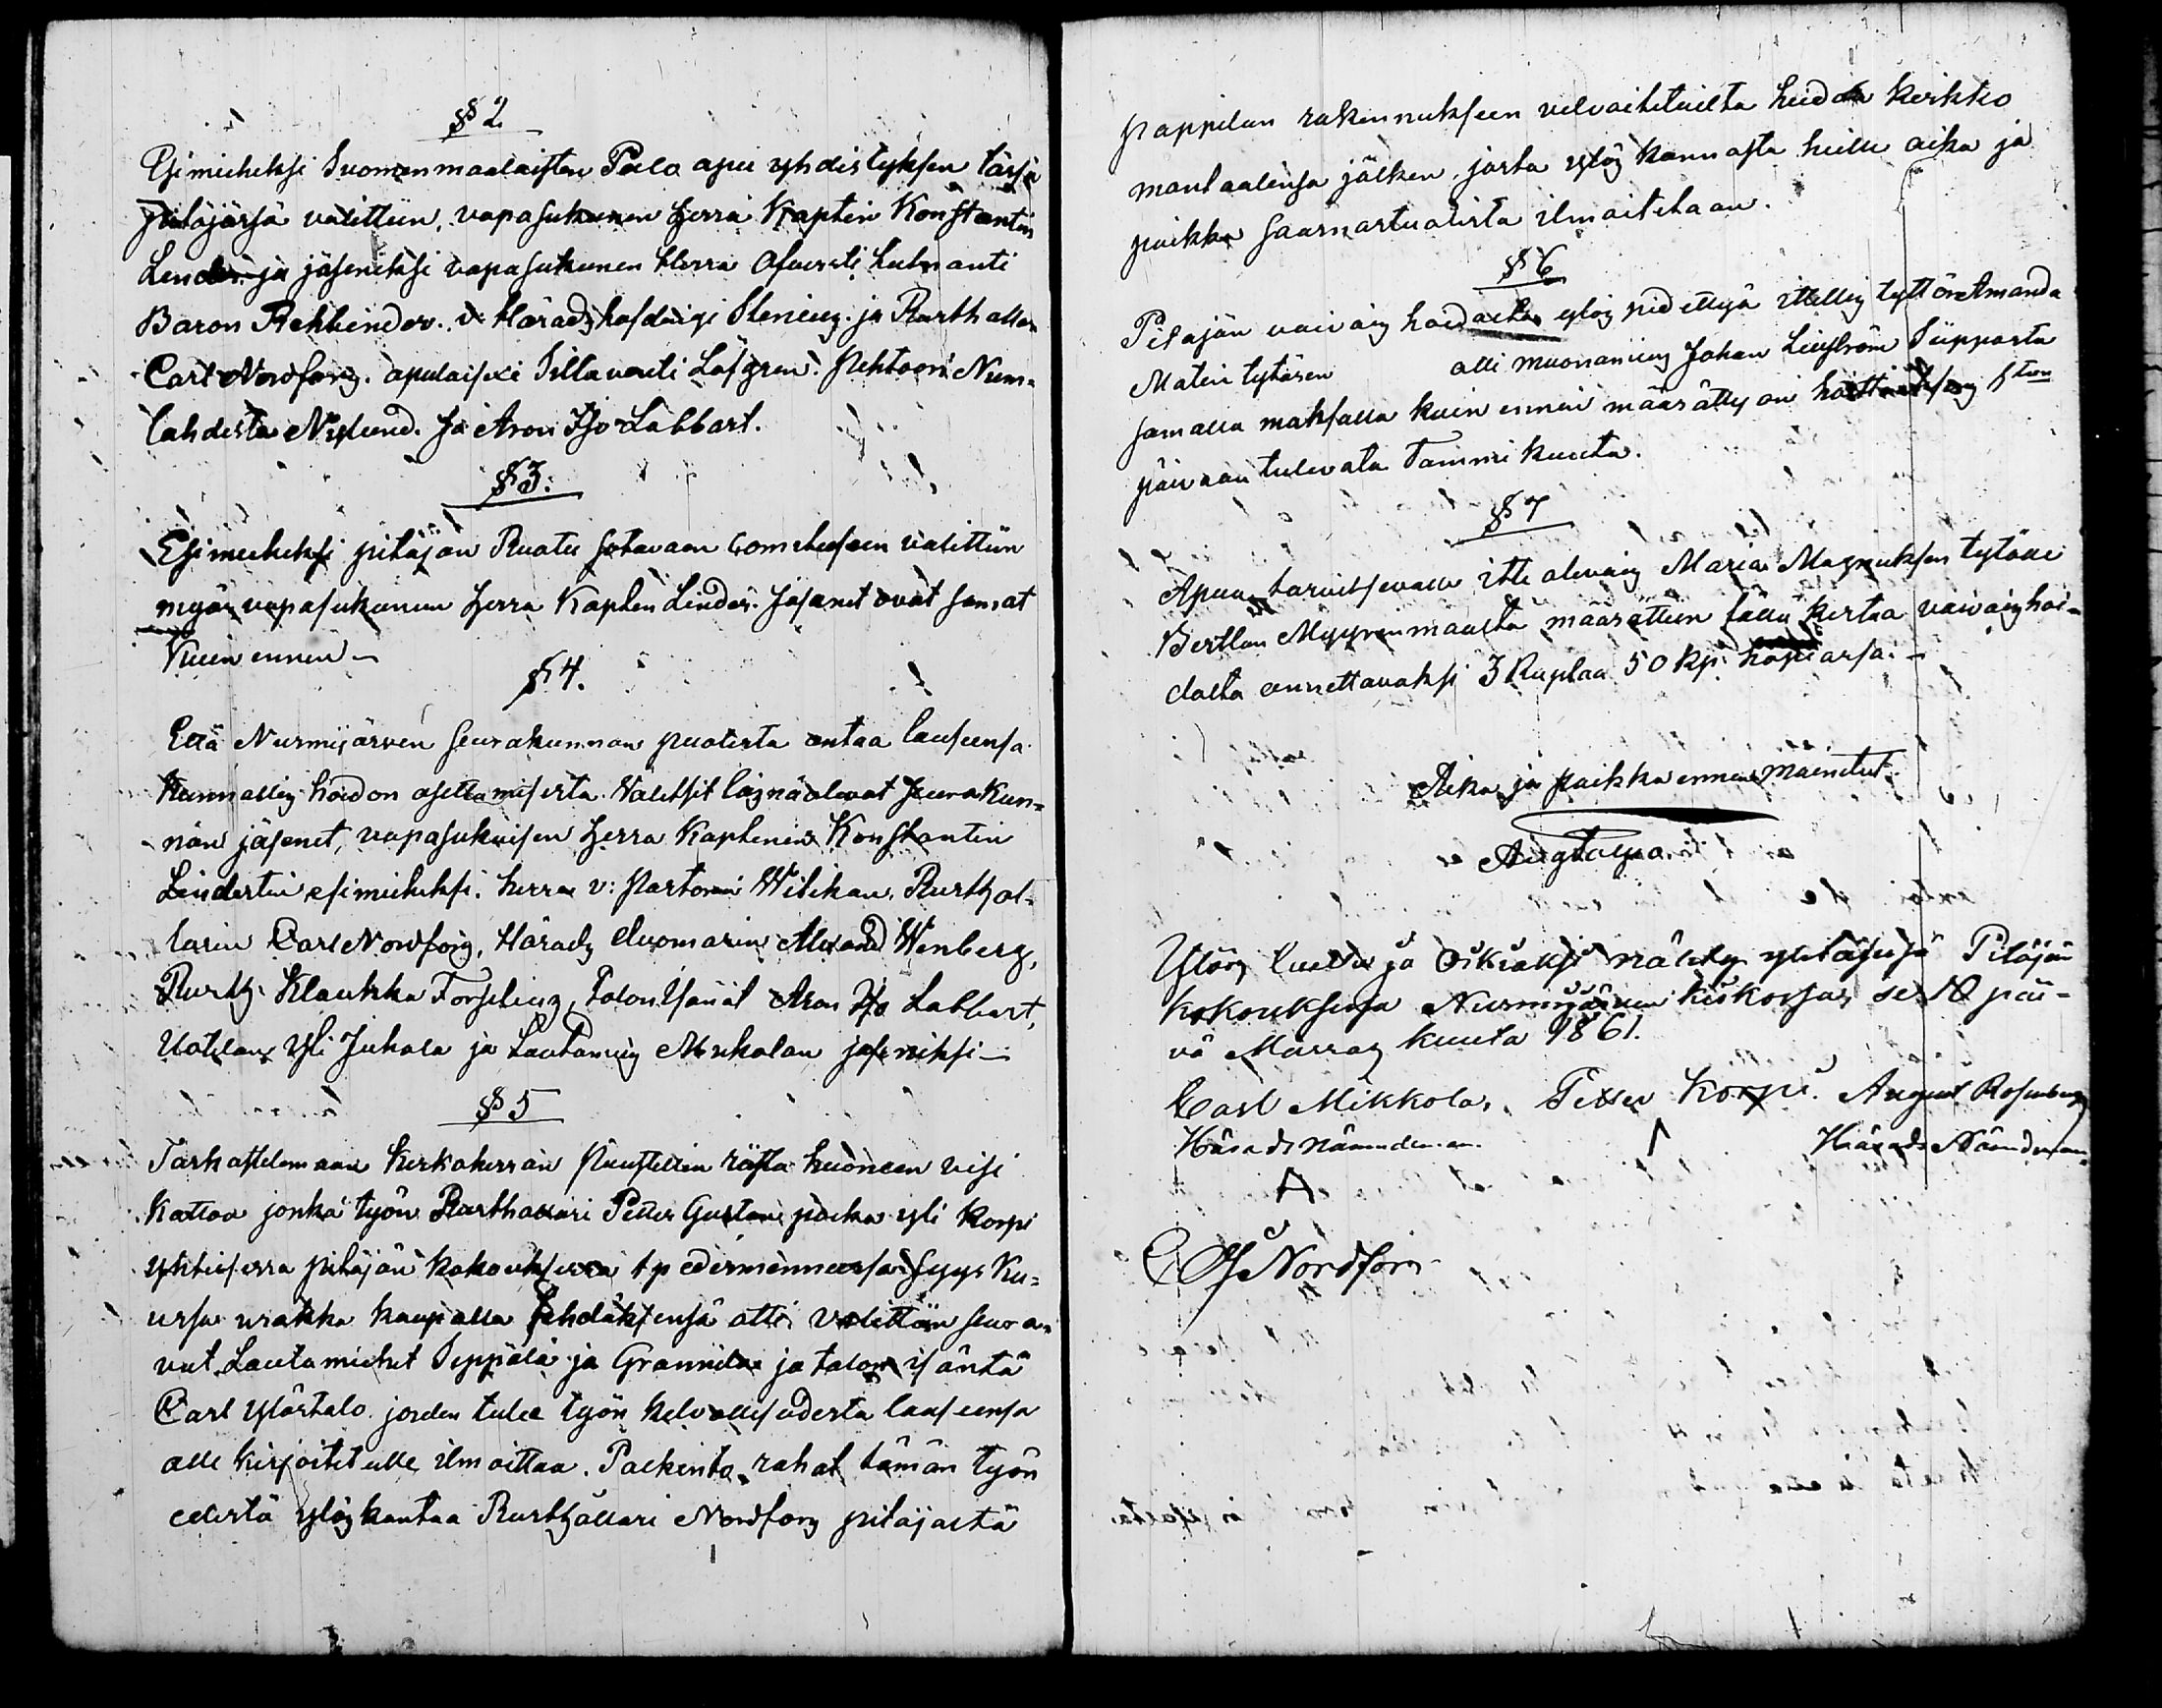 § 2
Esimieheksi Suomenmaalaisten Palo apu yhdistyksen täsä
pitäjäsä valittiin, vapasukunen Herra Kaptein Konstantin
Linder ja jäseneksi vapasukunen Herra Ofversti Lutnanti
Baron Rehbinder. v. Häradzhöfdingi Stenius. ja Rusthollari
Carl Nordforss. apulaisexi Siltavouti Löfgren. Rehtoori Num-
lahdesta Nylund. Ja Aron Iso Labbart.
§ 3.
Esimieheksi pitäjän Ruotu sotavaen Comiteeseen valittiin
myös vapasukunen Herra Kaptein Linder. Jäsenet ovat samat
kuin ennen –
§ 4.
Että Nurmijärven seurakunnan puolesta antaa lausensa
kunnallis hoidon asettamisesta. Valitsit läsnä olevat seurakun-
nan jäsenet, vapasukuisen Herra Kapteinin Konstantin
Linderin esimieheksi. herra v: Pastorin Wilskan, Rusthol-
larin Carl Nordforss, Härads Domarin Alexand Wenberg,
Rusth. Klaukka Forselius, Talon Isänät Aron Iso Labbart,
Uotilan Yli Juhola ja Lautamies Mukolan jäseniksi –
§ 5
Tarkastelemaan kirkoherran puustellin riista huoneen visi
kattoa jonka työn Rusthollari Petter Gustav poeka yli Korpi
yhteisessä pitäjän kokouksessa 1 p edesmenneessä Syys Ku-
ussa urakka kaupalla tehdäksensä otti. valittiin seura-
vat Lautamiehet Seppälä ja Grannila ja talon isäntä
Carl Ylöstalo. joiden tulee työn kelvollisudesta lausensa
alle kirjoitetulle ilmoittaa. Palkinto rahat tämän työn
edestä ylöskantaa Rusthollari Nordfors pitäjästä
pappilan rakennukseen velvoitetuilta heidän kirkko
mantaalinsa jälken, josta ylös kannosta heille aika ja
paikka saarnastuolista ilmoitetaan.
§ 6
Pitäjän vaivais hoidosta ylös pidettyä itellis tyttöö Amanda
Matin tytären otti muonamies Johan Linström Siipposta
samalla maksulla kuin ennen määrätty on hoittaaksens 1 ten
päivään tulevata Tammi kuuta.
§ 7
Apua tarvitsevalle itte olevais Maria Magnuksen tytölle
Bertlan Myyrinmaasta määrättiin tällä kertaa vaivaishoi-
dosta annettavaksi 3 Ruplaa 50 kp. hopiassa. –
Aika ja paikka ennen mainitut.
Ylös luettu ja oikiaksi nähty yhteisessä Pitäjän
kokouksessa Nurmijärven kirkossa, se 10 päi-
vä Marras kuuta 1861.
Carl Mikkola, Petter Korpi. August Rosenberg
Häradsnämndeman. Härads Nämndeman
C G Nordfors